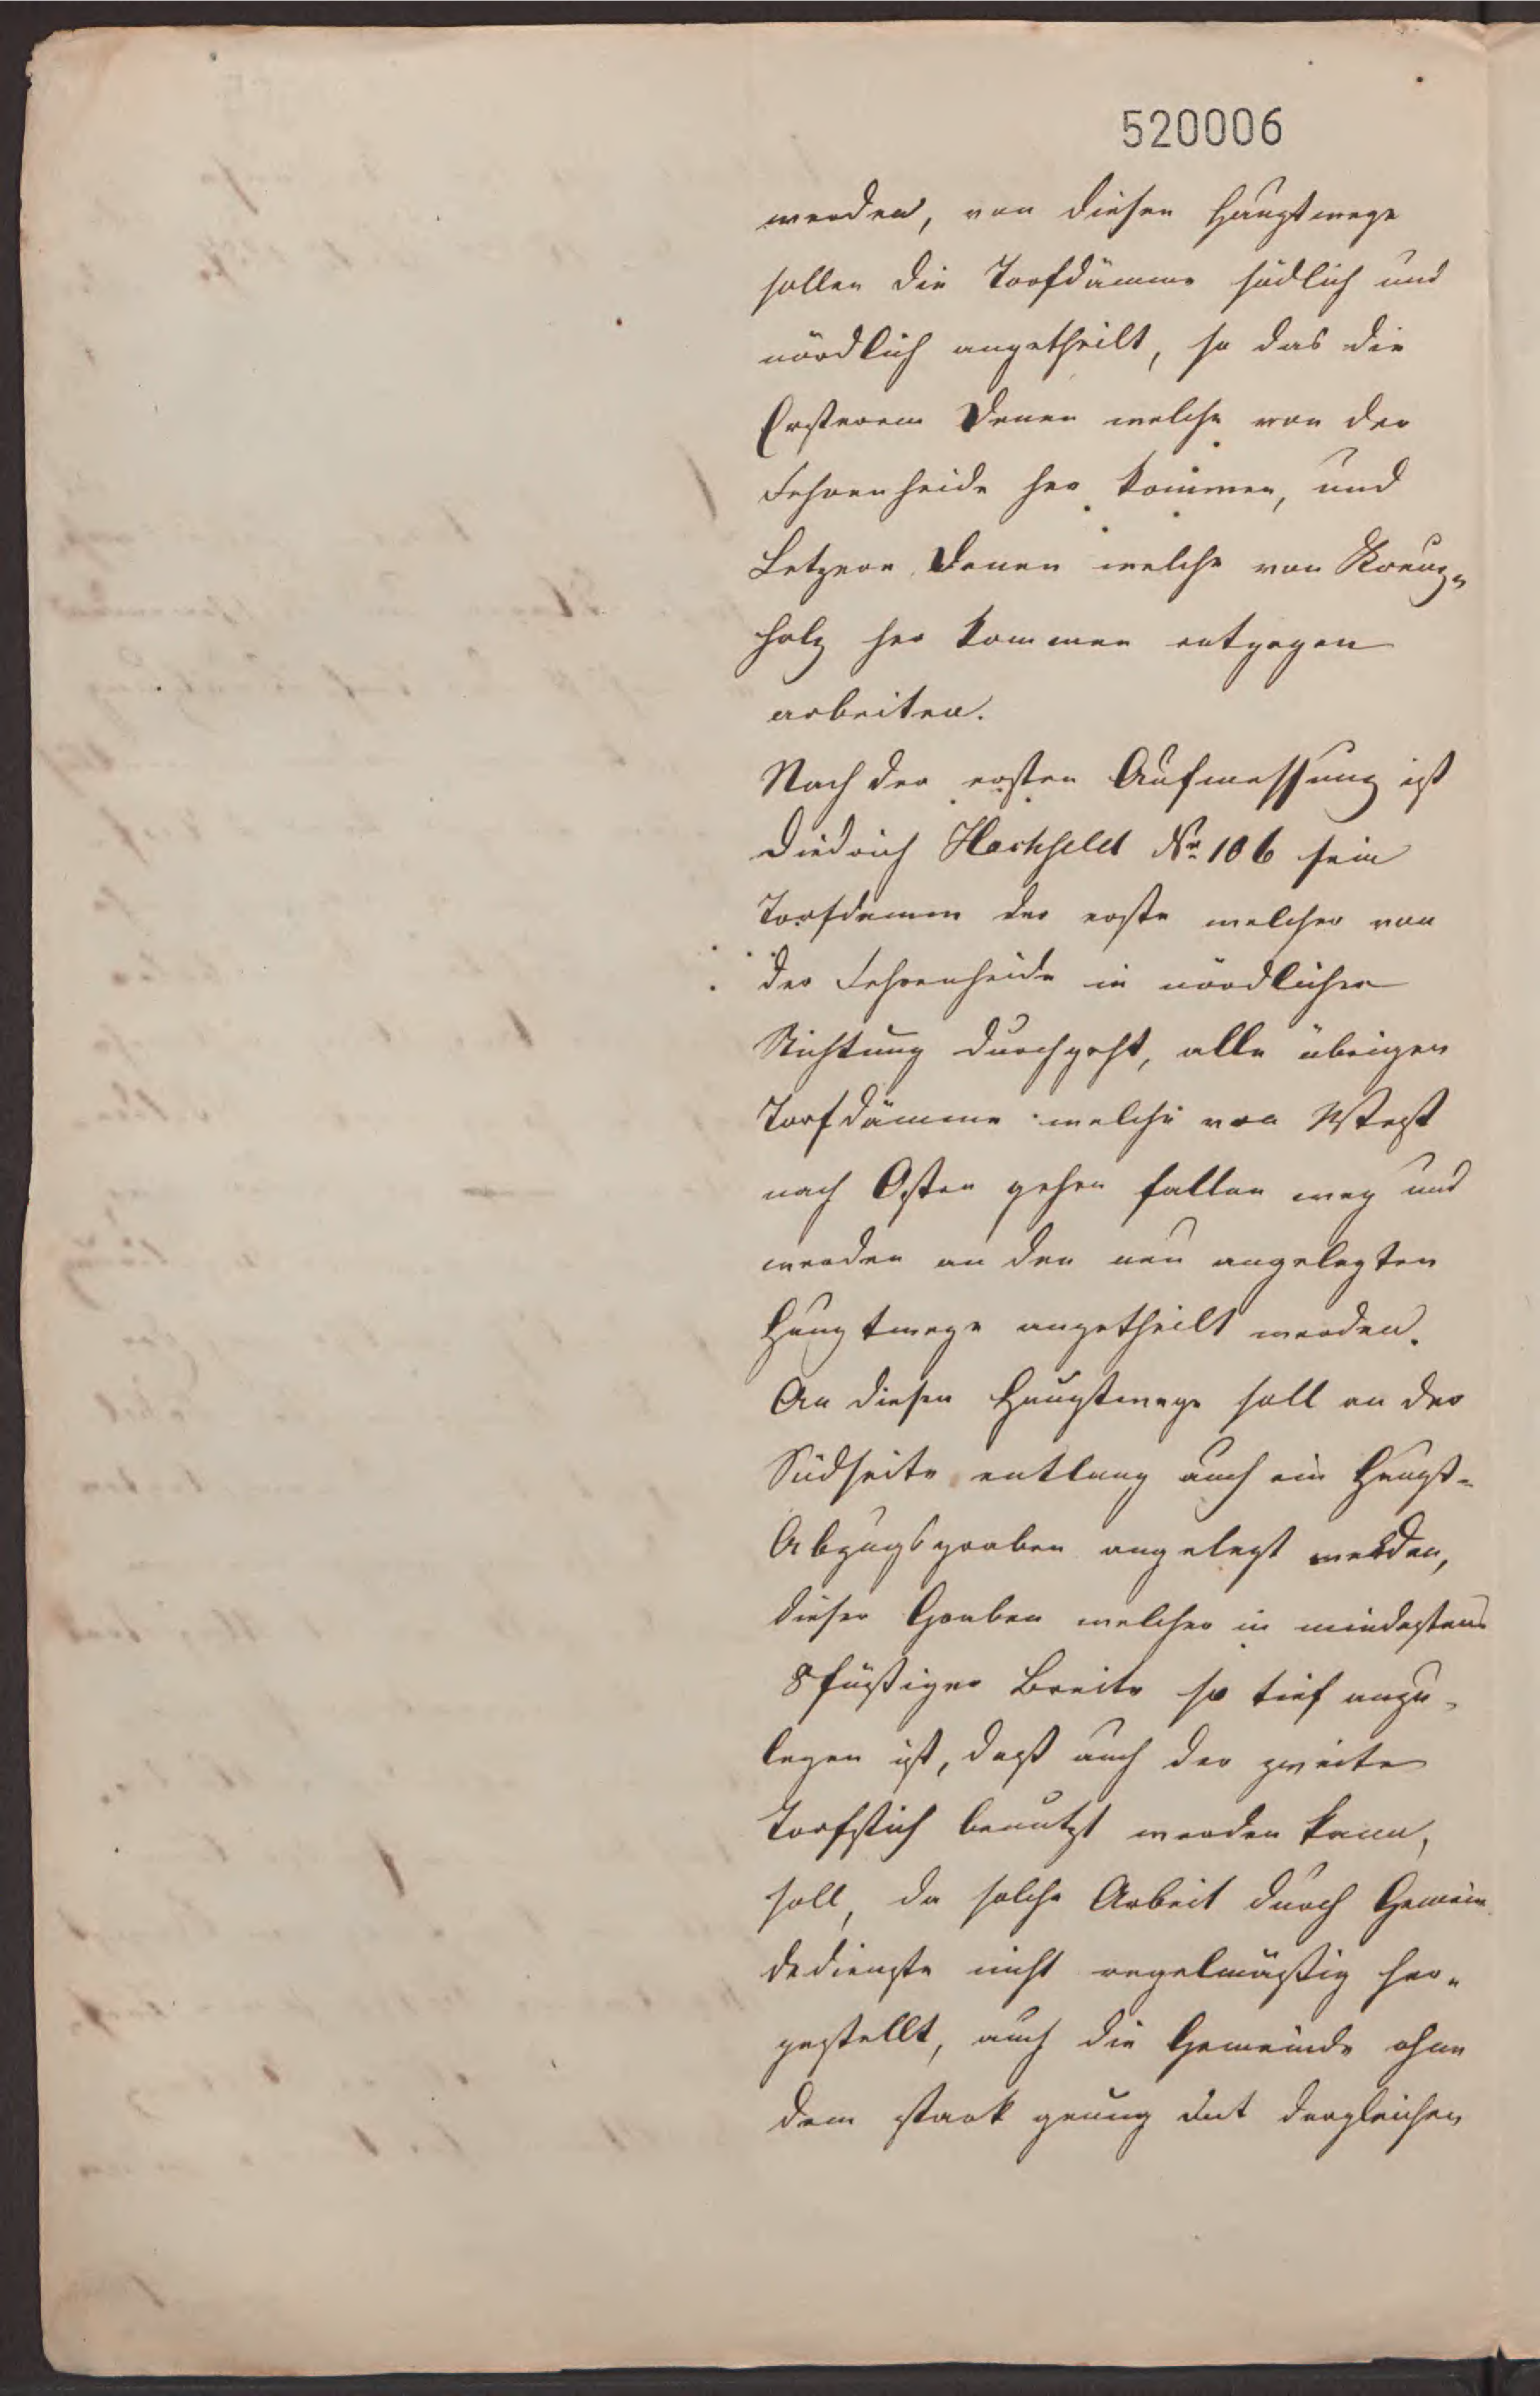 520006
werden, von diesen Hauptwege
sollen die Torfdämme südlich und
nördlich angetheilt, so das die
Ersteren denen welche von der
Fehrenheide her kommen, und
Letzere denen welche von Kreuz-
holz her kommen entgegen
arbeiten.
Nach der ersten Aufmessung ist
Diedrich Hachfeldt Nr. 106 sein
Torfdamm der erste welcher von
der Fehrenheide in nördlicher
Richtung durchgeht, alle übrigen
Torfdämme welche von West
nach Osten gehen fallen weg und
werden an den neu angelegten
Hauptwege angetheilt werden.
An diesen Hauptwege soll an der
Südseite entlang auch ein Haupt-
Abzugsgraben angelegt werden,
dieser Graben welcher in mindestens
8füßiger Breite so tief anzu-
legen ist, daß auch der zweite
Torfstich benutzt werden kann,
soll, da solche Arbeit durch Gemein
dedienste nicht regelmäßig her-
gestellt, auch die Gemeinde ohne
dem stark genug mit dergleichen